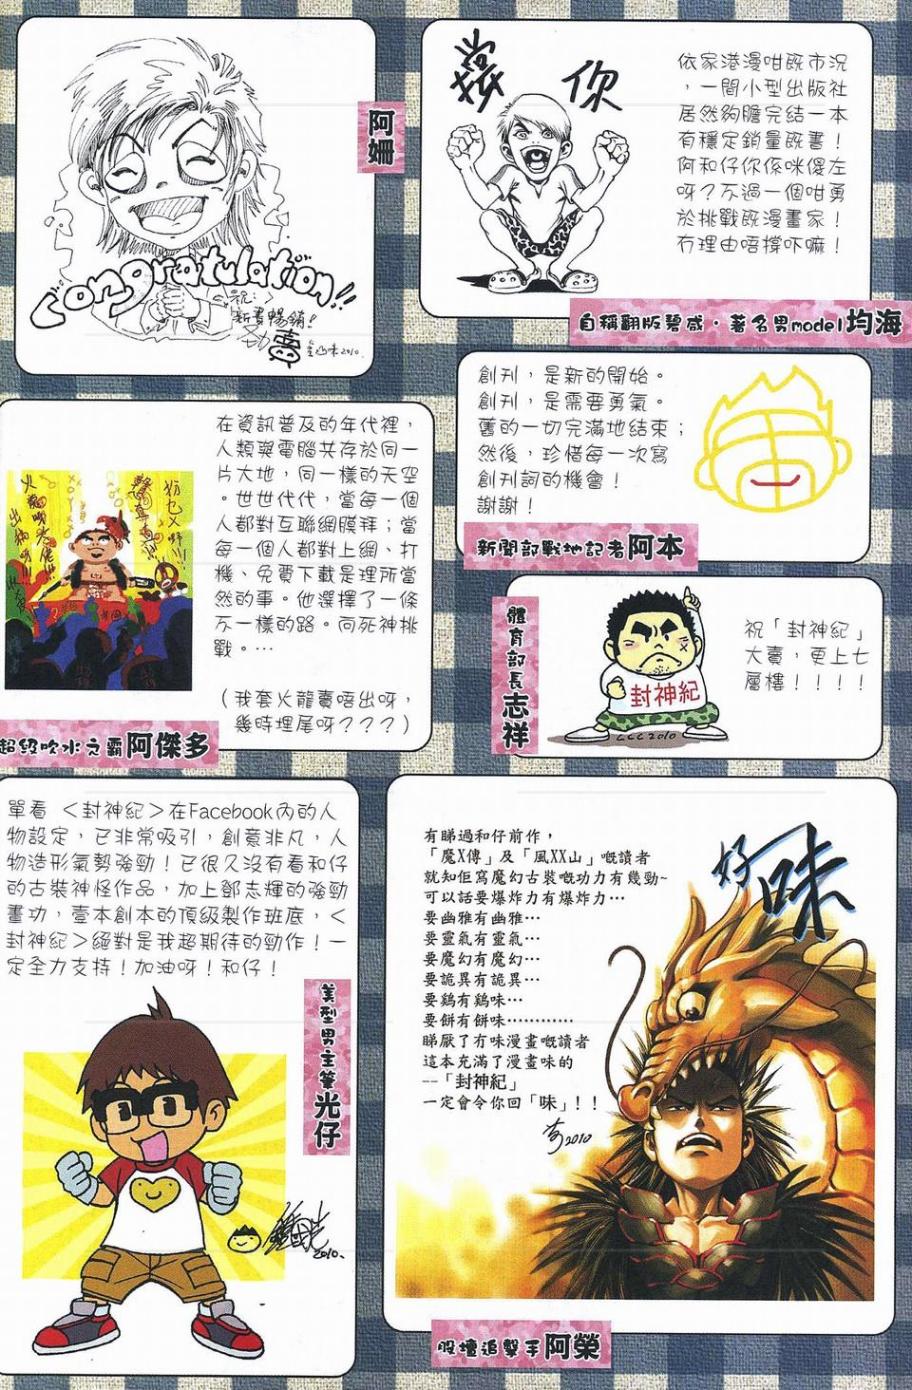 阿姗
Congratulation!!
祝：
新書暢銷！
2010.
撐你
依家港漫咁既市況
，一間小型出版社
居然夠膽完結一本
有穩定銷量既書！
何和仔你係咪傻左
呀？不過一個咁勇
於挑戰既漫畫家！
冇理由唔撐吓嘛！
自稱翻版碧咸·著名男model均海
創刊，是新的開始。
創刊，是需要勇氣。
舊的一切完滿地結束；
然後，珍惜每一次寫
創刊詞的機會！
謝謝！
新聞部戰地記者阿本
在資訊普及的年代裡，
人類與電腦共存於同一
片大地，同一樣的天空
。世世代代，當每一個
人都對互聯網膜拜；當
每一個人都對上網、打
機、免費下載是理所當
然的事。他選擇了一條
不一樣的路。向死神挑
戰。…
（我套火龍賣唔出呀，
幾時埋尾呀？？？）
超級吹水之霸阿傑多
體育部長志祥
封神紀
CCC2010
祝「封神紀」
大賣，更上七
層樓！！！！
單看＜封神紀＞在Facebook內的人
物設定，已非常吸引，創意非凡，人
物造形氣勢強勁！已很久沒有看和仔
的古裝神怪作品，加上鄭志輝的強勁
畫功，壹本創本的頂級製作班底，＜
封神紀＞絕對是我超期待的勁作！一
定全力支持！加油呀！和仔！
美型男主筆光仔
2010.
有睇過和仔前作，
「魔X傳」及「風XX山」嘅讀者
就知佢寫魔幻古裝嘅功力有幾勁~
可以話要爆炸力有爆炸力…
要幽雅有幽雅…
要靈氣有靈氣…
要魔幻有魔幻…
要詭異有詭異…
要鷄有鷄味…
要餅有餅味…………
睇厭了冇味漫畫嘅讀者
這本充滿了漫畫味的
--「封神紀」
一定會令你回「味」！！
2010
好味
股壇追擊手阿榮